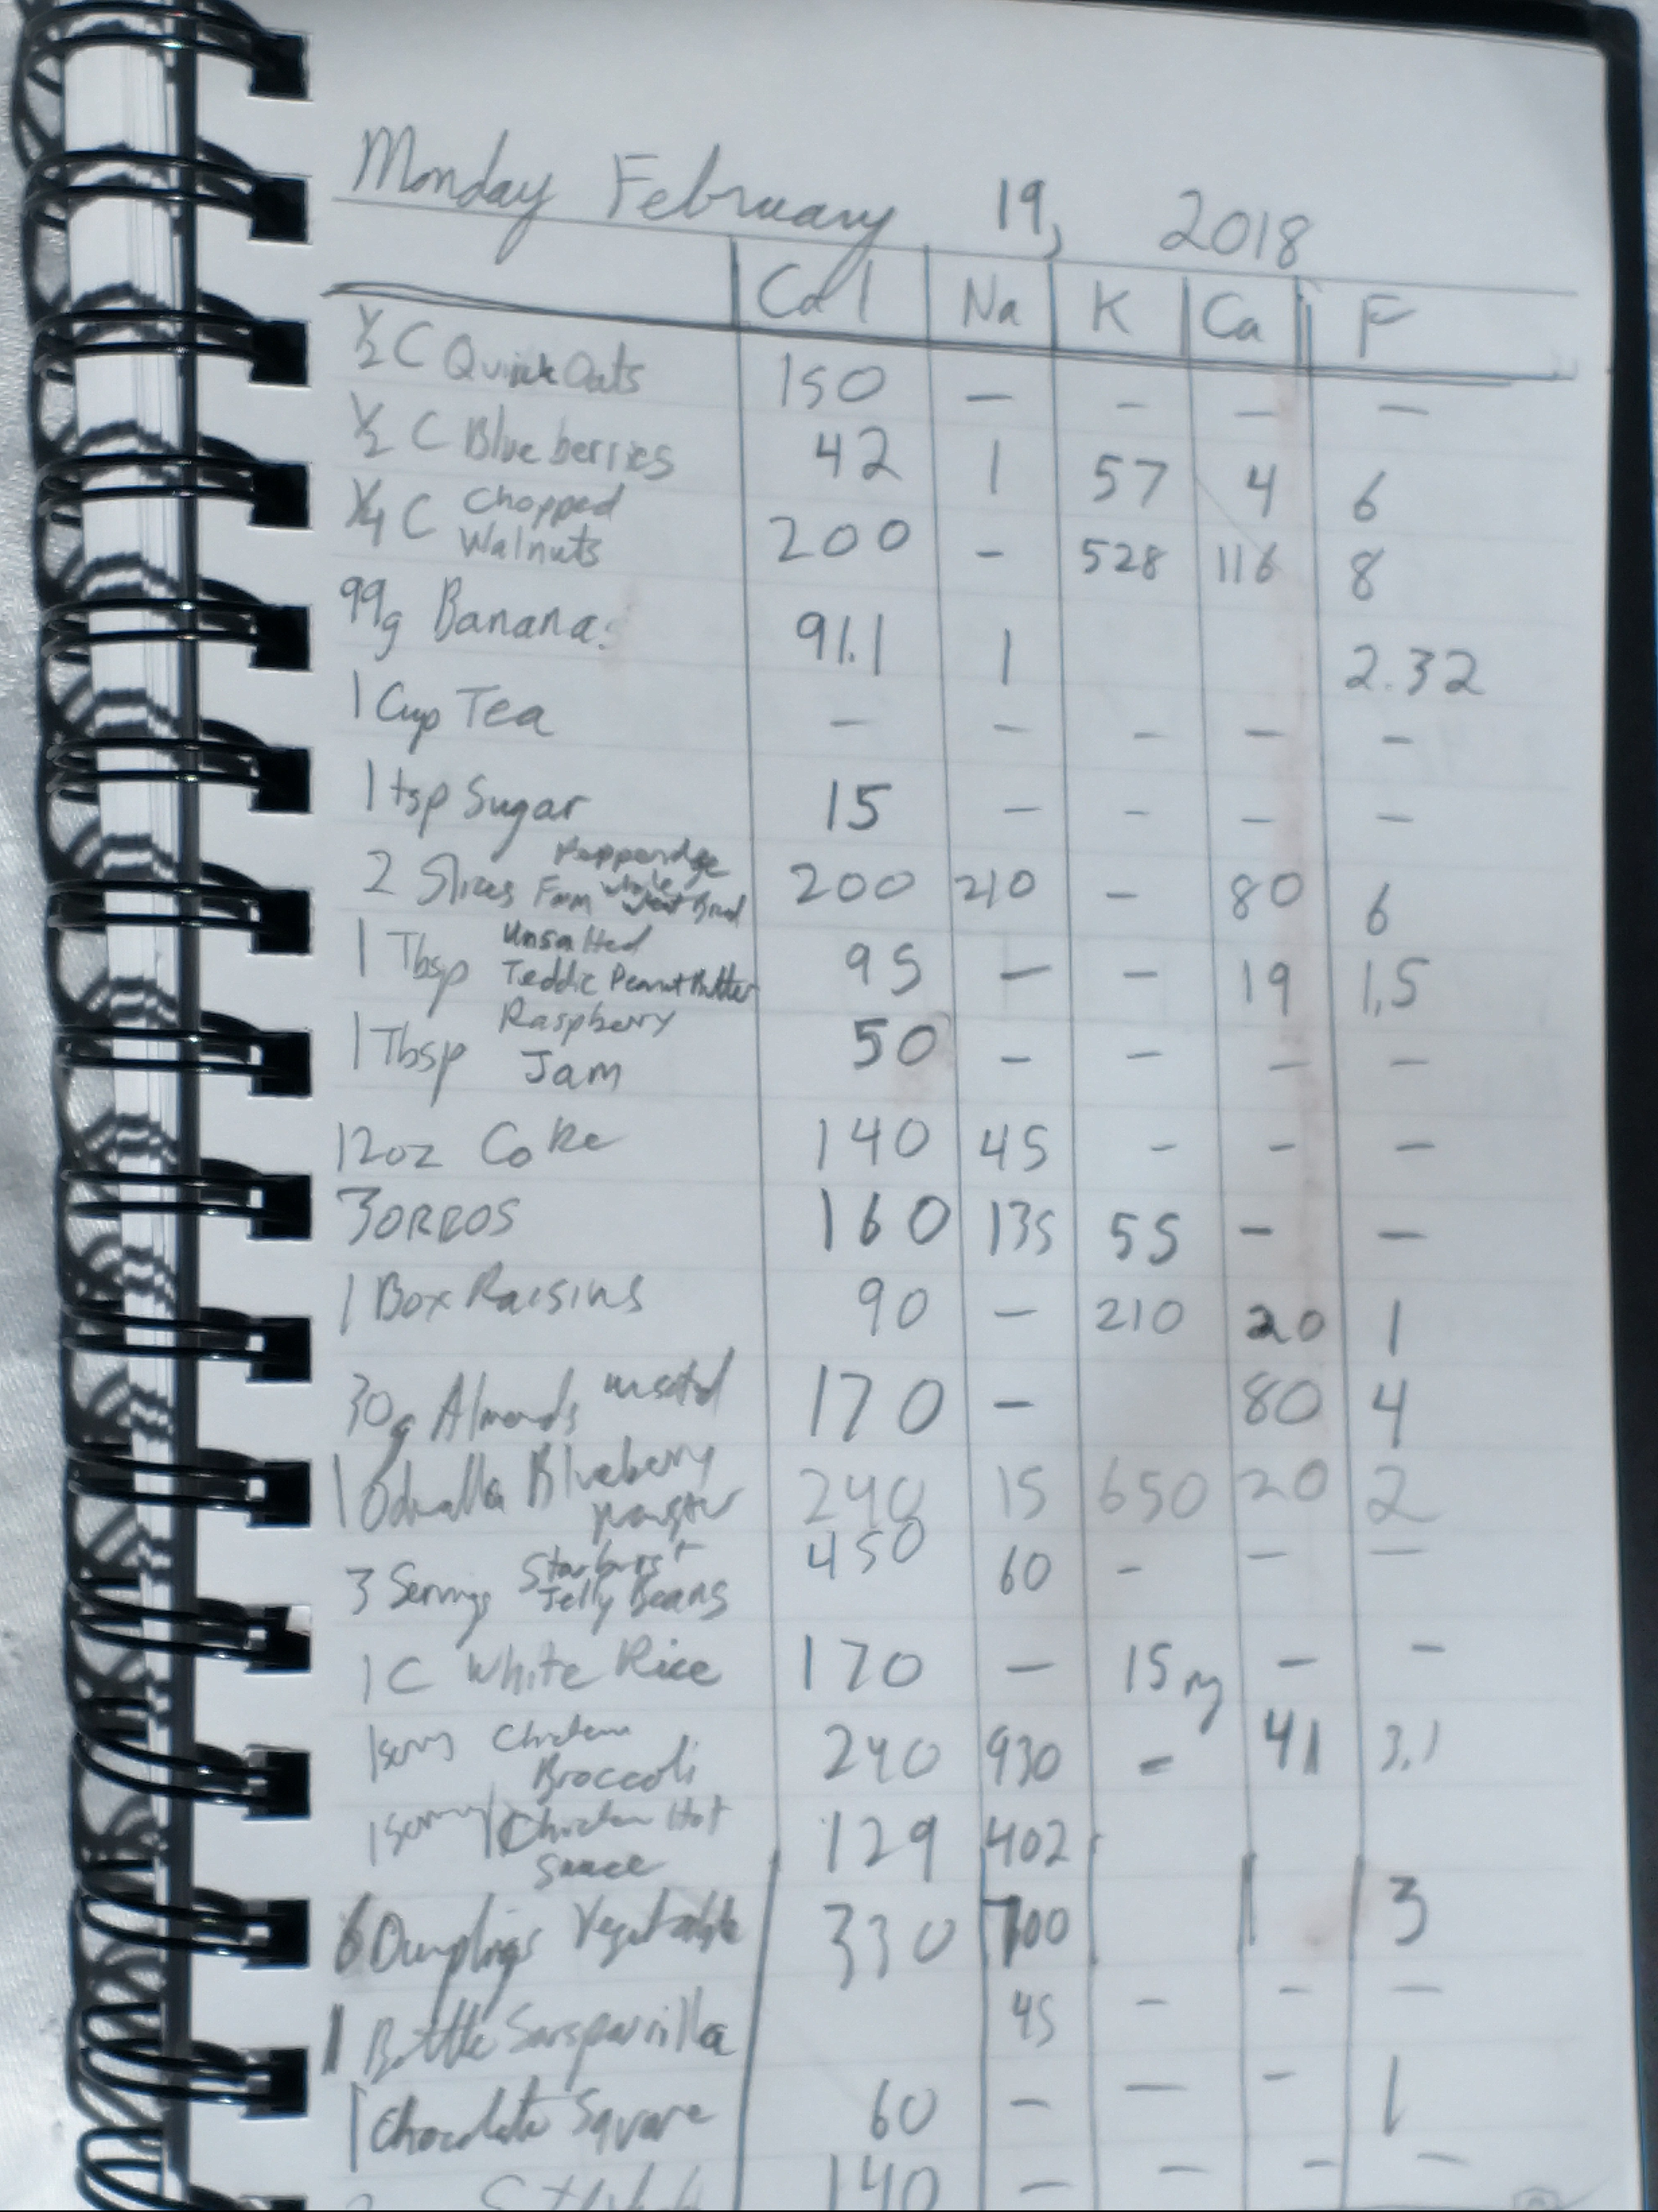 Monday February 19, 2018
Cal Na K Ca F
½ C Quick Oats 150 — — — —
½ C Blueberries 42 1 57 4 6
¼ C Chopped Walnuts 200 — 528 116 8
99g Banana: 91.1 1 2.32
1 Cup Tea — — — — —
1 tsp Sugar 15 — — — —
2 Slices Pepperidge Farm Whole Wheat Bread 200 210 — 80 6
1 Tbsp Unsalted Teddie Peanut Butter 95 — — 19 1.5
1 Tbsp Raspberry Jam 50 — — — —
12oz Coke 140 45 - - —
3 OREOS 160 135 55 — —
1 Box Raisins 90 — 210 20 1
30g Almonds 170 — 80 4
1 Odwalla Blueberry 240 15 650 20 2
3 Servings Starburst Jelly Beans 450 60 - — —
1 C White Rice 170 — 15mg — —
1 Chicken Broccoli 240 930 - 41 3.1
1 Chicken Hot Sauce 129 402
6 Dumplings Vegetable 330 700 3
1 Bottle Sarsparilla 45 — — —
1 Chocolate Square 60 — — - 1
140 — — — —